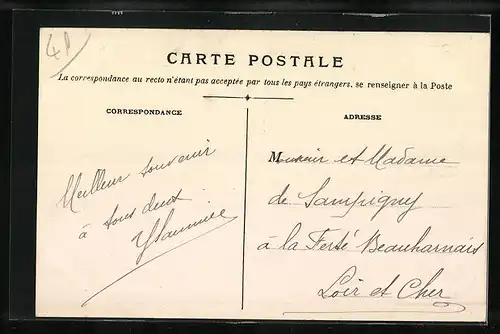 41
CARTE POSTALE
La correspondance au recto n'étant pas acceptée par tous les pays étrangers, se renseigner à la Poste
CORRESPONDANCE
Meilleur souvenir
à tous deux
ADRESSE
Monsieur et Madame
de Sampigny
à la Ferté Beauharnais
Loir et Cher